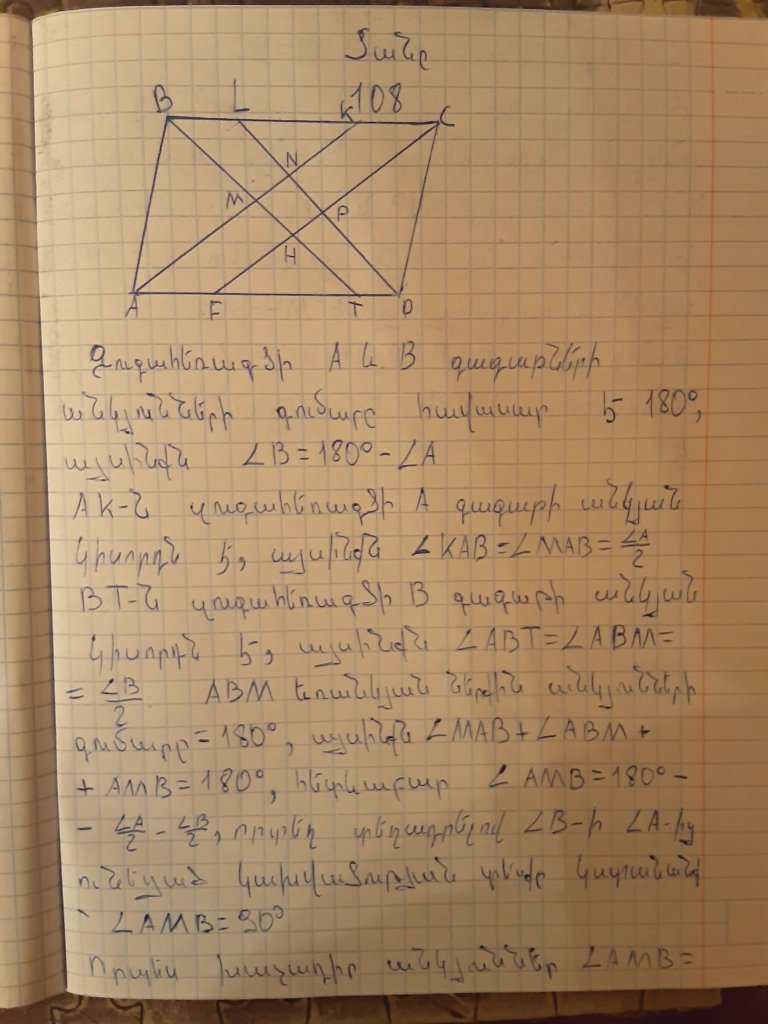 Տանը
108
B L K C
N
M P
H
A F T D
Զուգահեռագծի A և B գագաթների
անկյունների գումարը հավասար է 180°,
այսինքն ∠B = 180° - ∠A
AK-ն զուգահեռագծի A գագաթի անկյան
կիսորդն է, այսինքն ∠KAB = ∠MAB = ∠A/2
BT-ն զուգահեռագծի B գագաթի անկյան
կիսորդն է, այսինքն ∠ABT = ∠ABM =
= ∠B/2 ABM եռանկյան ներքին անկյունների
գումարը = 180°, այսինքն ∠MAB + ∠ABM +
+ AMB = 180°, հետևաբար ∠AMB = 180° -
- ∠A/2 - ∠B/2, որտեղ տեղադրելով ∠B-ի ∠A-ից
ունեցած կախվածության տեսքը կստանանք
՝ ∠AMB = 90°
Որպես խաչադիր անկյուններ ∠AMB =